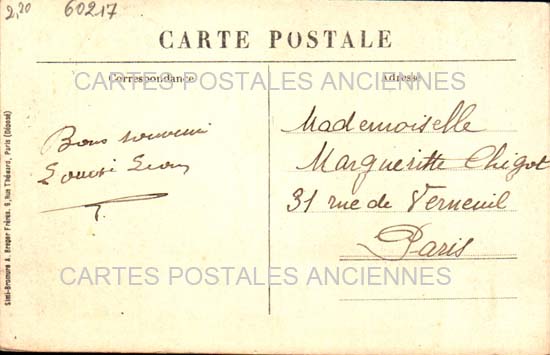 2,20 60217
CARTE POSTALE
Correspondance
Adresse
CARTES POSTALES ANCIENNES
Bons souvenir
Mademoiselle
Margueritte Chigot
31 rue de Verneuil
Paris
CARTES POSTALES ANCIENNES
Simi-Bromure A. Breger Frères, 9, Rue Thénard, Paris (Déposé)